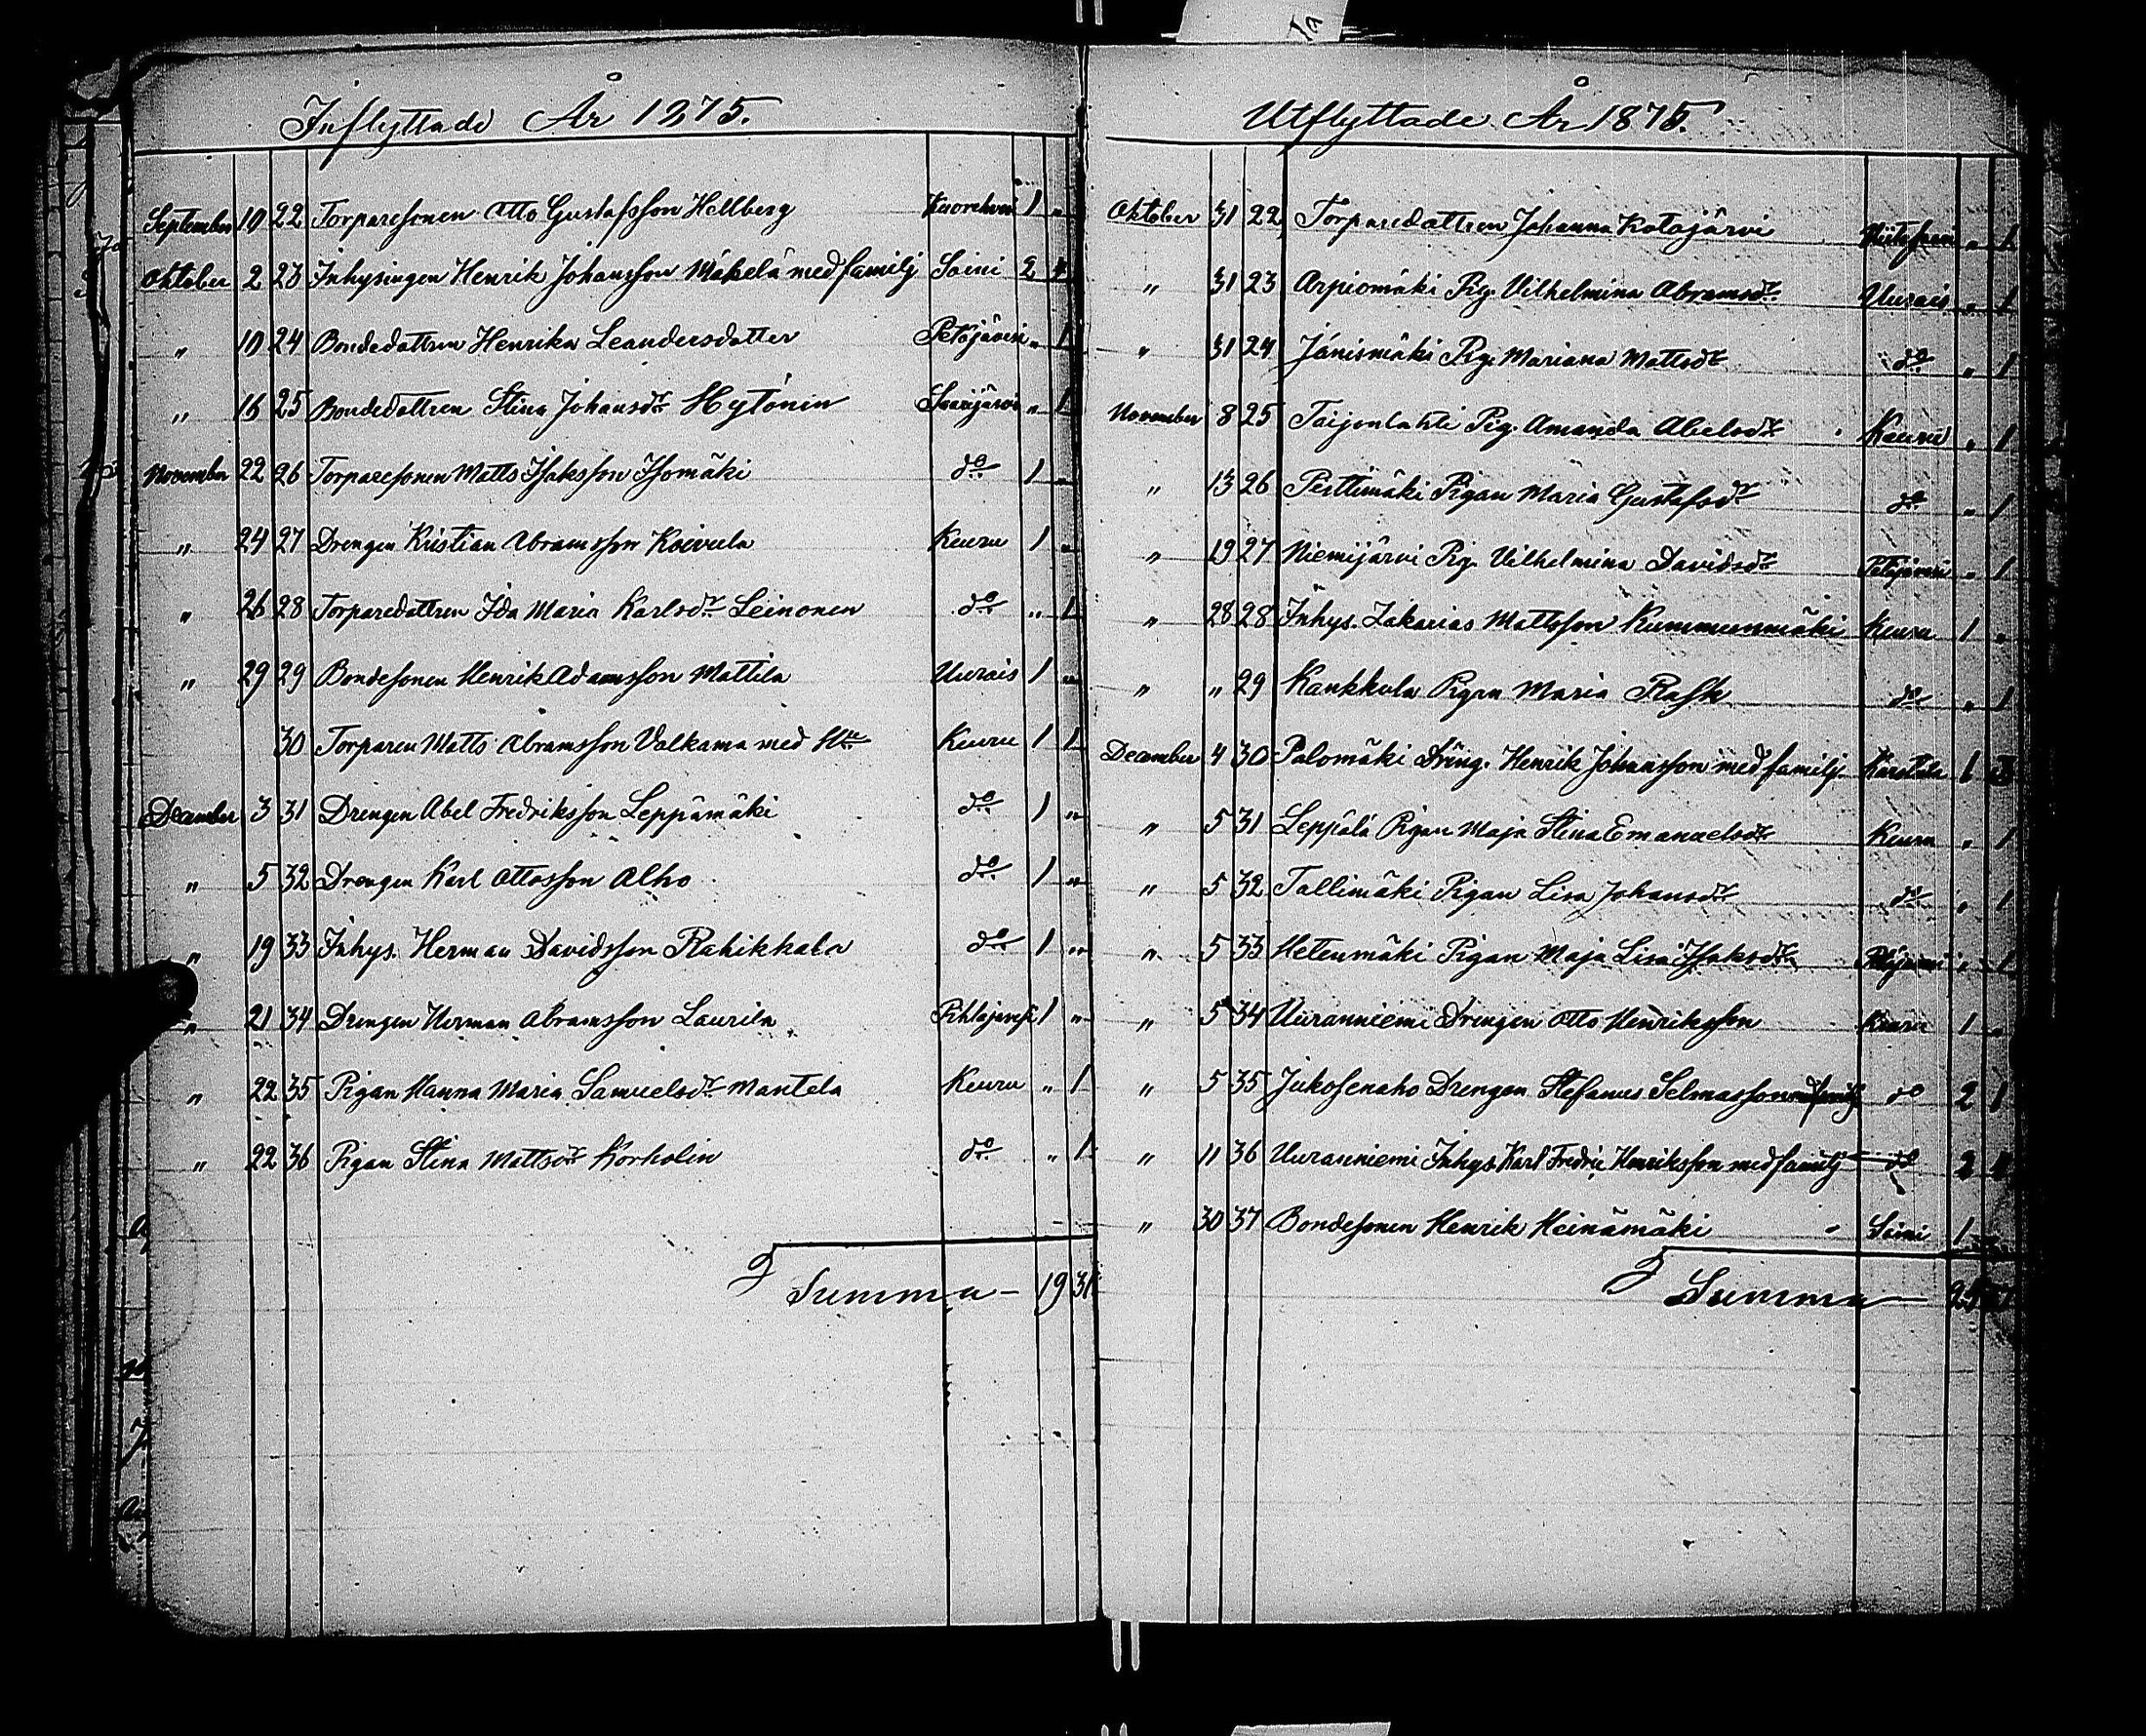 Inflyttade År 1875.
September 10 22 Torparesonen Otto Gustafsson Hellberg Kuorehvesi 1 "
Oktober 2 23 Inhysingen Henrik Johansson Mäkelä med familj Soini 2 4
" 10 24 Bondedattren Henrika Leandersdatter Petäjävesi " 1
" 16 25 Bondedattren Stina Johansdr Hytönin Saarijärvi " 1
November 22 26 Torparesonen Matts Isaksson Isomäki do 1 "
" 24 27 Drengen Kristian Abramsson Koivula Keuru 1 "
" 26 28 Torparedattren Ida Maria Karlsdr Leinonen do " 1
" 29 29 Bondesonen Henrik Adamsson Mattila Uurais 1 "
30 Torparen Matts Abramsson Valkama med Hu Keuru 1 1
December 3 31 Drengen Abel Fredriksson Leppämäki do 1 "
" 5 32 Drengen Karl Ottosson Alho do 1 "
" 19 33 Inhys. Herman Davidsson Rahikkala do 1 "
" 21 34 Drengen Herman Abramsson Laurila Pihlajavesi 1 "
" 22 35 Pigan Hanna Maria Samuelsdr Mantela Keuru " 1
" 22 36 Pigan Stina Mattsdr Korholin do " 1
Summa 19 31
Utflyttade År 1875.
Oktober 31 22 Torparedattren Johanna Kotajärvi " 1
" 31 23 Arpiomäki Pig. Vilhelmina Abramsdr Uurais " 1
" 31 24 Jänismäki Pig. Mariana Mattsdr do " 1
November 8 25 Taijonlahti Pig. Amanda Abelsdr Keuru " 1
" 13 26 Perttimäki Pigan Maria Gustafsdr do " 1
" 19 27 Niemijärvi Pig. Vilhelmina Davidsdr Petäjävesi " 1
" 28 28 Inhys. Zakarias Mattsson Kummunmäki Keuru 1 "
" " 29 Kankkula Pigan Maria Rask do " 1
December 4 30 Palomäki Dräng. Henrik Johansson med familj. Karstula 1 3
" 5 31 Leppälä Pigan Maja Stina Emanuelsdr Keuru " 1
" 5 32 Tallimäki Pigan Lisa Johansdr do " 1
" 5 33 Hetenmäki Pigan Maja Lisa Isaksdr " 1
" 5 34 Uuranniemi Drengen Otto Henriksson Keuru 1 "
" 5 35 Jukosenaho Drengen Stefanus Selmasson med familj do 2 1
" 11 36 Uuranniemi Inhys. Karl Fredric Henriksson med familj do 2
" 30 37 Bondesonen Henrik Heinämäki Soini 1
Summa